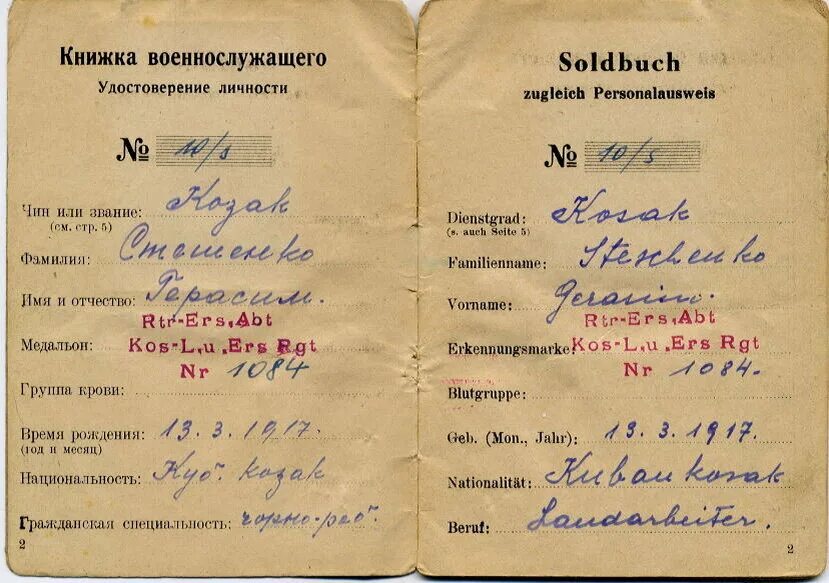 Книжка военнослужащего
Удостоверение личности
№ 10/s
Чин или звание: Козак
(см. стр. 5)
Фамилия: Стешенко
Имя и отчество: Герасим.
Rtr-Ers,Abt
Медальон: Kos-L,u,Ers Rgt
Nr 1084
Группа крови:
Время рождения: 13. 3. 1917.
(год и месяц)
Национальность: Куб. козак
Гражданская специальность: чорно-раб.
2
Soldbuch
zugleich Personalausweis
№ 10/s
Dienstgrad: Kosak
(s. auch Seite 5)
Familienname: Steschenko
Vorname: Gerasim.
Rtr-Ers,Abt
Erkennungsmarke: Kos-L,u,Ers Rgt
Nr 1084.
Blutgruppe:
Geb. (Mon., Jahr): 13. 3. 1917.
Nationalität: Kubankosak
Beruf: Landarbeiter.
2